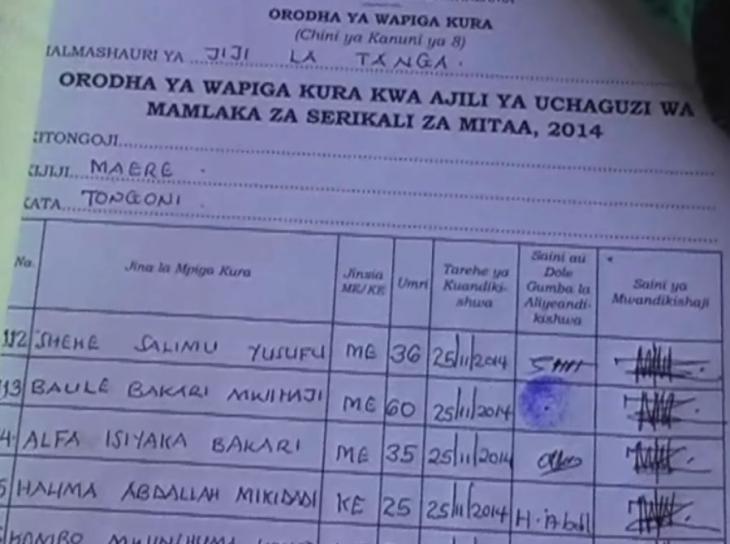 ORODHA YA WAPIGA KURA
(Chini ya Kanuni ya 8)
HALMASHAURI YA JIJI LA TANGA.
ORODHA YA WAPIGA KURA KWA AJILI YA UCHAGUZI WA
MAMLAKA ZA SERIKALI ZA MITAA, 2014
KITONGOJI
KIJIJI MAERE
KATA TONGONI
Na. Jina la Mpiga Kura Jinsia ME/KE Umri Tarehe ya Kuandiki-shwa Saini au Dole Gumba la Aliyeandi-kishwa Saini ya Mwandikishaji
112 SHEHE SALIMU YUSUFU ME 36 25/11/2014
113 BAULE BAKARI MWIHAJI ME 60 25/11/2014
4. ALFA ISIYAKA BAKARI ME 35 25/11/2014
5 HALIMA ABDALLAH MIKIDADI KE 25 25/11/2014 H.Abdll